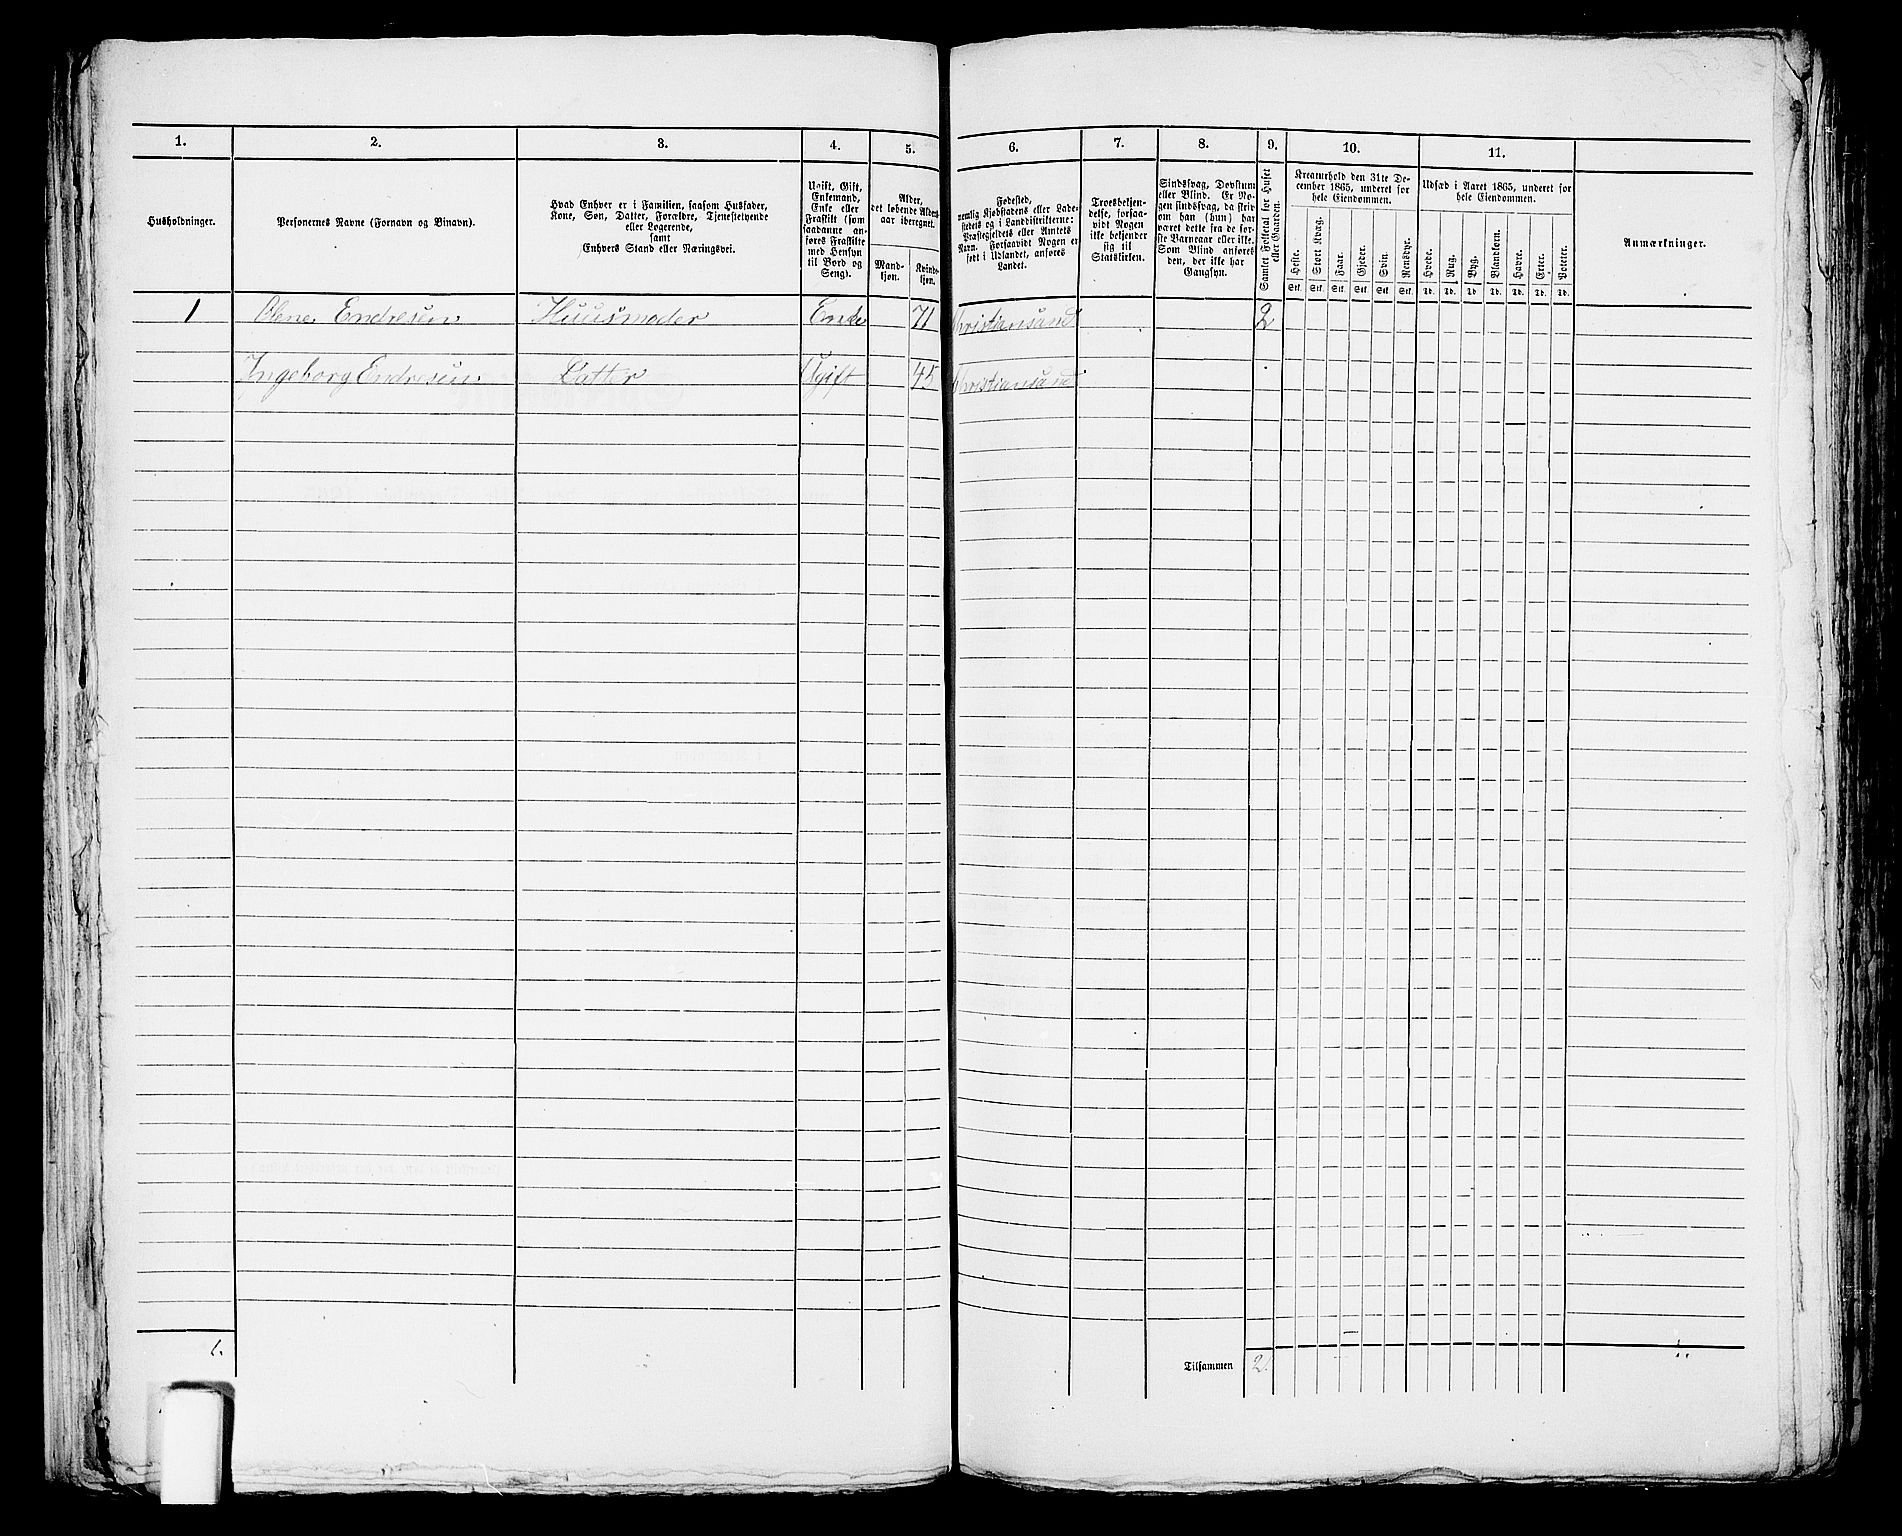 1. 2. 3. 4. 5. 6. 7. 8. 9. 10. 11.
Husholdninger.
Personernes Navne (Fornavn og Binavn).
Hvad Enhver er i Familien, saasom Husfader,
Kone, Søn, Datter, Forældre, Tjenestetyende
eller Logerende,
samt
Enhvers Stand eller Næringsvei.
Ugift, Gift,
Enkemand,
Enke eller
Fraskilt (som
saadanne an-
føres Fraskilte
med Hensyn
til Bord og
Seng).
Alder,
det løbende Alders-
aar iberegnet.
Mand-
kjøn.
Kvinde-
kjøn.
Fødested,
nemlig Kjøbstadens eller Lade-
stedets og i Landdistrikterne:
Præstegjeldets eller Amtets
Navn. Forsaavidt Nogen er
født i Udlandet, anføres
Landet.
Troesbekjen-
delse, forsaa-
vidt Nogen
ikke bekjender
sig til
Statskirken.
Sindssvag, Døvstum
eller Blind. Er No-
gen sindssvag, da skriv
om han (hun) har
været dette fra de før-
ste Barneaar eller ikke.
Som Blind anføres
den, der ikke har
Gangsyn.
Samlet Folketal for Huset
eller Gaarden.
Kreaturhold den 31te De-
cember 1865, underet for
hele Eiendommen.
Heste. Stort Kvæg. Faar. Gjeder. Svin. Rensdyr.
Stk. Stk. Stk. Stk. Stk. Stk.
Udsæd i Aaret 1865, underet for
hele Eiendommen.
Hvede. Rug. Byg. Blandkorn. Havre. Erter. Poteter.
Td. Td. Td. Td. Td. Td. Td.
Anmærkninger.
1 Olene Endresen Huusmoder Enke 71 Christiansand 2
Ingeborg Endresen Datter Ugift 45 Christiansand
1.
Tilsammen 2.